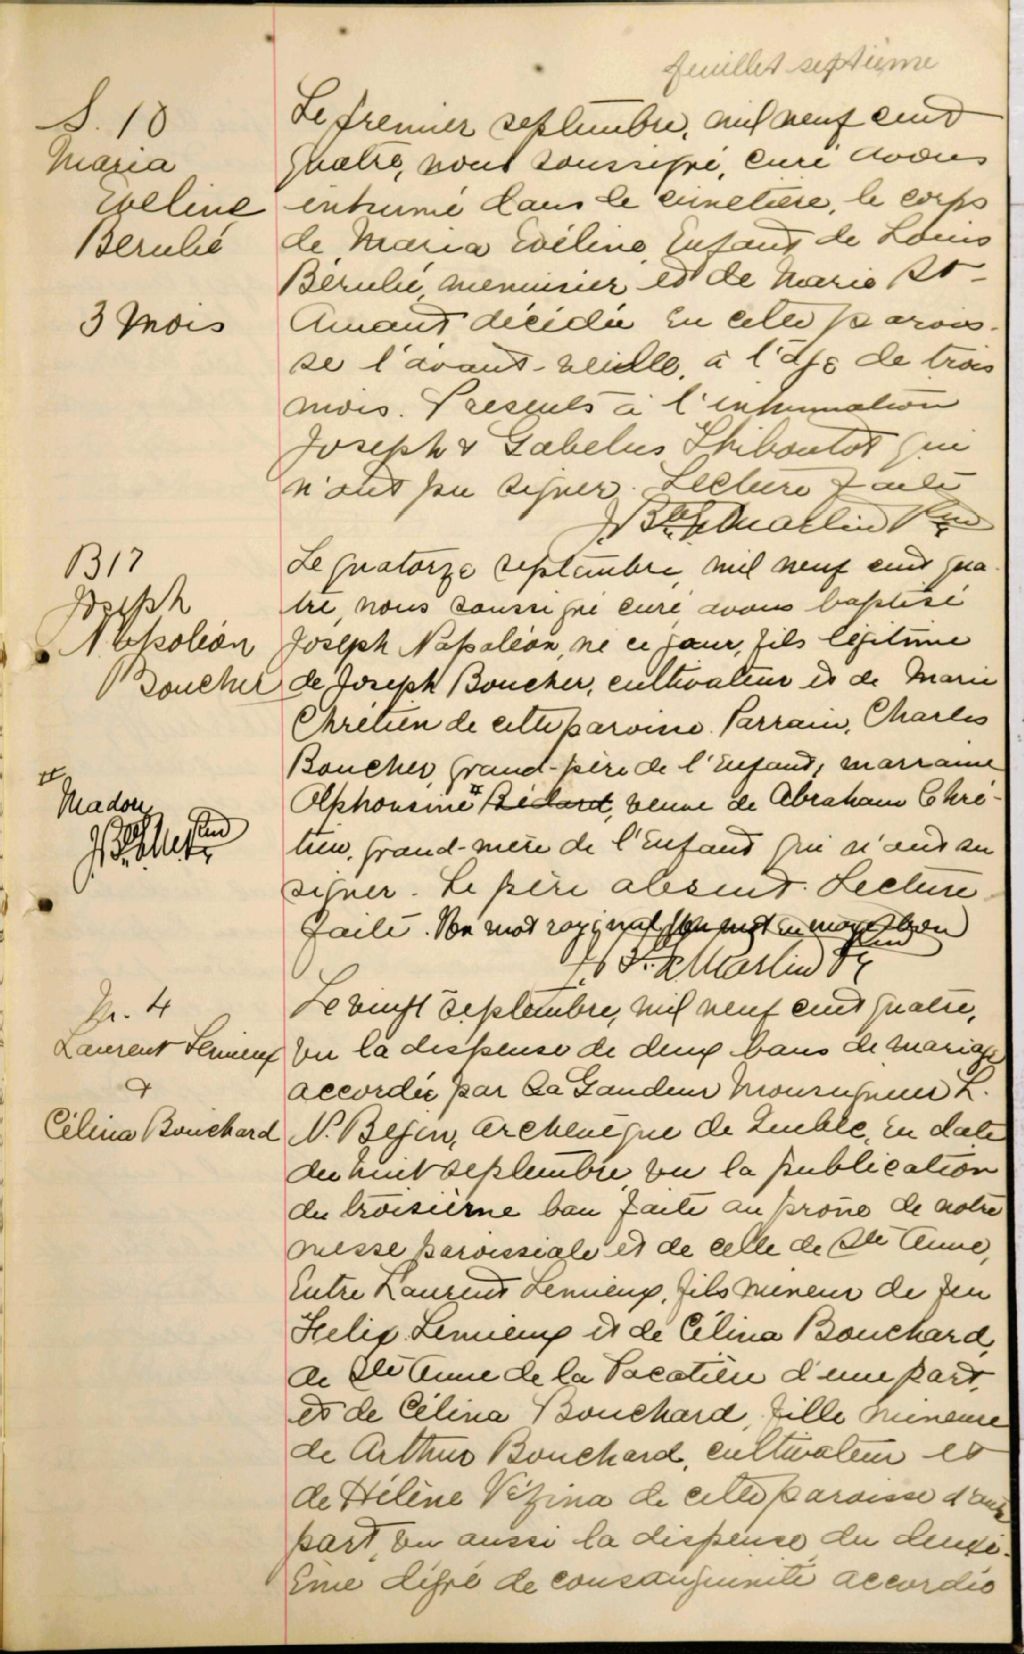 feuillet septième
S. 10
Maria
Eveline
Berubé
3 mois
Le premier septembre, mil neuf cent
quatre, nous soussigné, curé avons
inhumé dans le cimetière, le corps
de Maria Evéline Enfant de Louis
Bérubé, menuisier et de Marie St-
Amant décédée en cette parois-
se l'avant-veille, à l'age de trois
mois. Présents à l'inhumation
Joseph & Gabelus Thiboutot qui
n'ont pu signer. Lecture faite
J. Bte Martin Ptre
B 17
Joseph
Napoléon
Boucher
Le quatorze septembre mil neuf cent qua-
tre, nous soussigné curé, avons baptisé
Joseph Napoléon, né ce jour, fils légitime
de Joseph Boucher, cultivateur et de Marie
Chrétien de cette paroisse. Parrain, Charles
Boucher, grand-père de l'Enfant, marraine
Alphonsine # Bédard, veuve de Abraham Chré-
tien, grand-mère de l'Enfant qui n'ont su
signer. Le père absent. Lecture
faite. Un mot rayé nul, un mot en marge bon
Martin Ptre
#
Madon
M. 4
Laurent Lemieux
&
Célina Bouchard
Le vingt septembre, mil neuf cent quatre,
vu la dispense de deux bans de mariage
accordée par Sa Gandeur Monseigneur L.
N. Begin, Archevêque de Québec, en date
du huit septembre, vu la publication
du troisième ban faite au prône de notre
messe paroissiale et de celle de Ste Anne,
Entre Laurent Lemieux, fils mineur de feu
Felix Lemieux et de Célina Bouchard,
de Ste Anne de la Pocatière d'une part,
et de Célina Bouchard, fille mineure
de Arthur Bouchard, cultivateur et
de Hélène Vézina de cette paroisse d'autre
part, vu aussi la dispense du deuxi-
ème dégré de consanguinité accordée